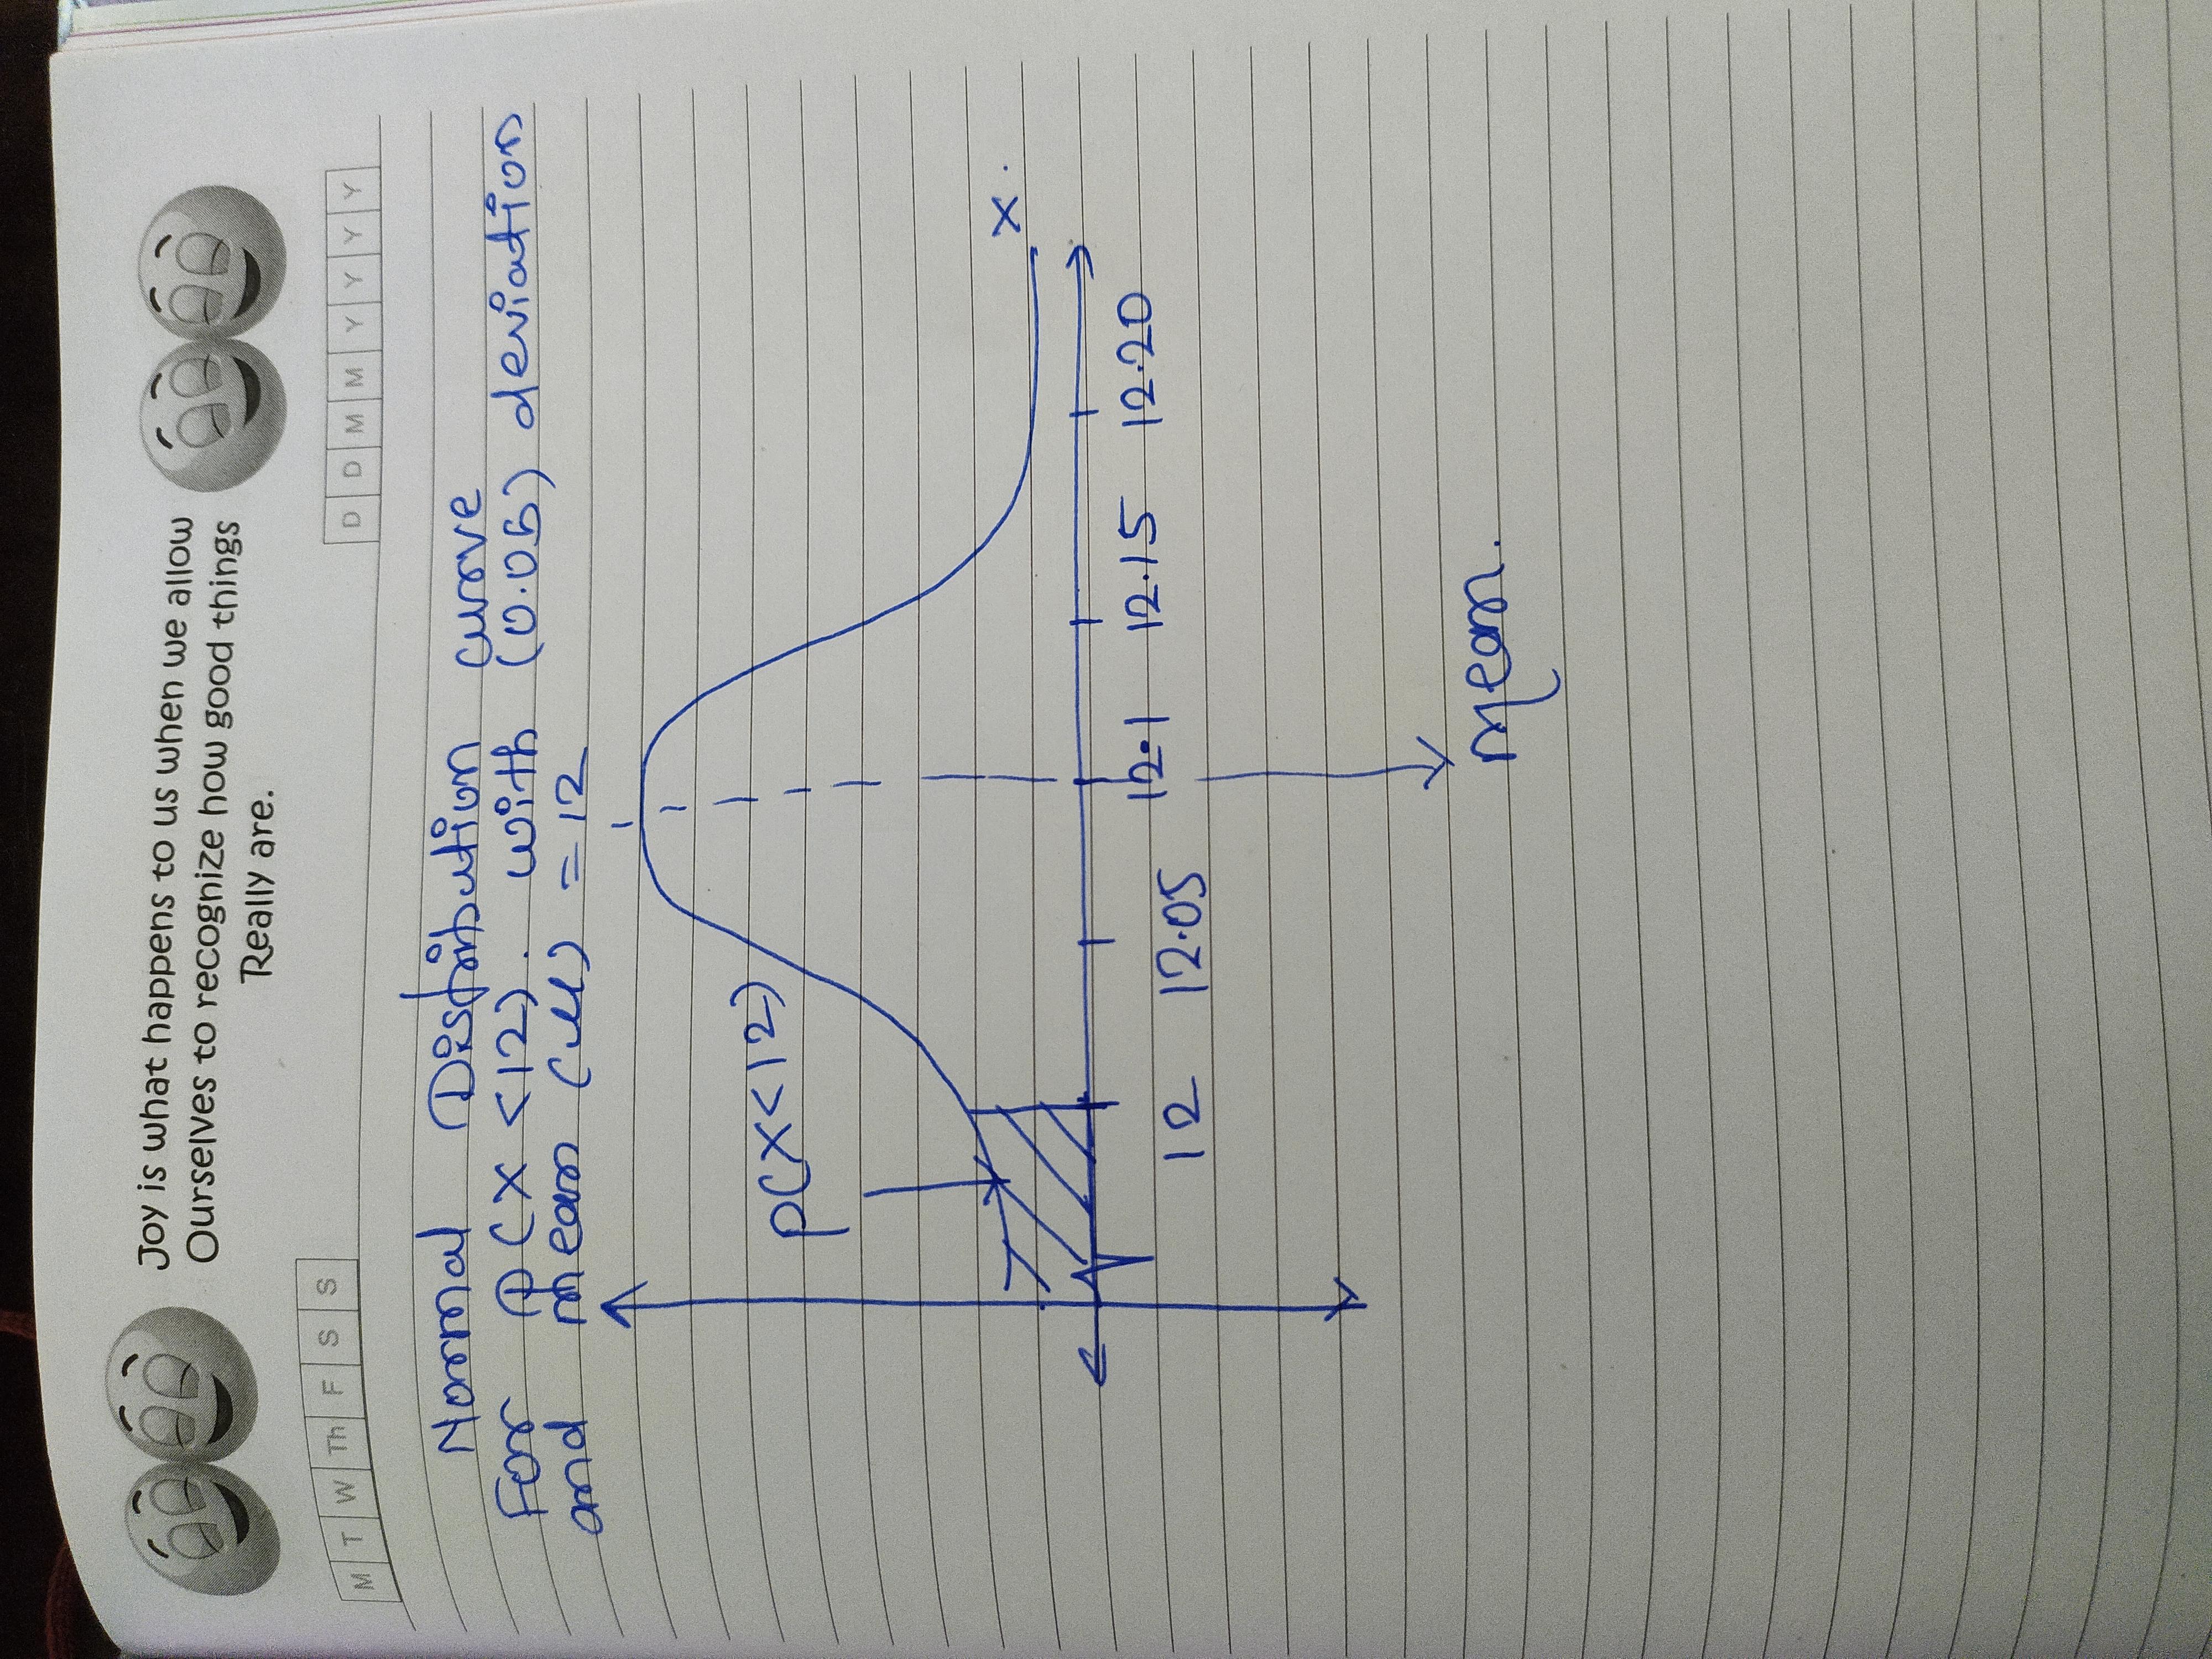 Joy is what happens to us when we allow
Ourselves to recognize how good things
Really are.
M T W Th F S S
D D M M Y Y Y Y
Normal Distribution curve
For P(X <12). with (0.05) deviation
and mean (μ) = 12
P(X<12)
X.
12 12.05 12.1 12.15 12.20
Mean.